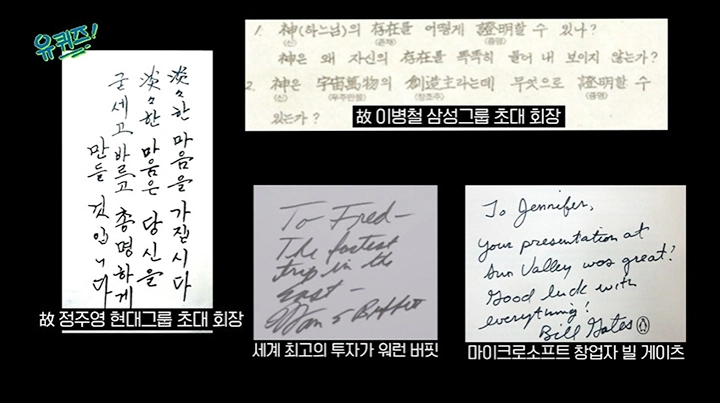 유퀴즈!
淡淡한 마음을 가집시다
淡淡한 마음은 당신을
굳세고 바르고 총명하게
만들 것입니다
故 정주영 현대그룹 초대 회장
1. 神(하느님)의 存在를 어떻게 證明할 수 있나?
(신) (존재) (증명)
神은 왜 자신의 存在를 똑똑히 들어 내 보이지 않는가?
2. 神은 宇宙萬物의 創造主라는데 무엇으로 證明할 수
(신) (우주만물) (창조주) (증명)
있는가?
故 이병철 삼성그룹 초대 회장
To Fred—
The fastest
trip in the
East—
세계 최고의 투자가 워런 버핏
To Jennifer,
Your presentation at
Sun Valley was great!
Good luck with
everything!
Bill Gates
마이크로소프트 창업자 빌 게이츠